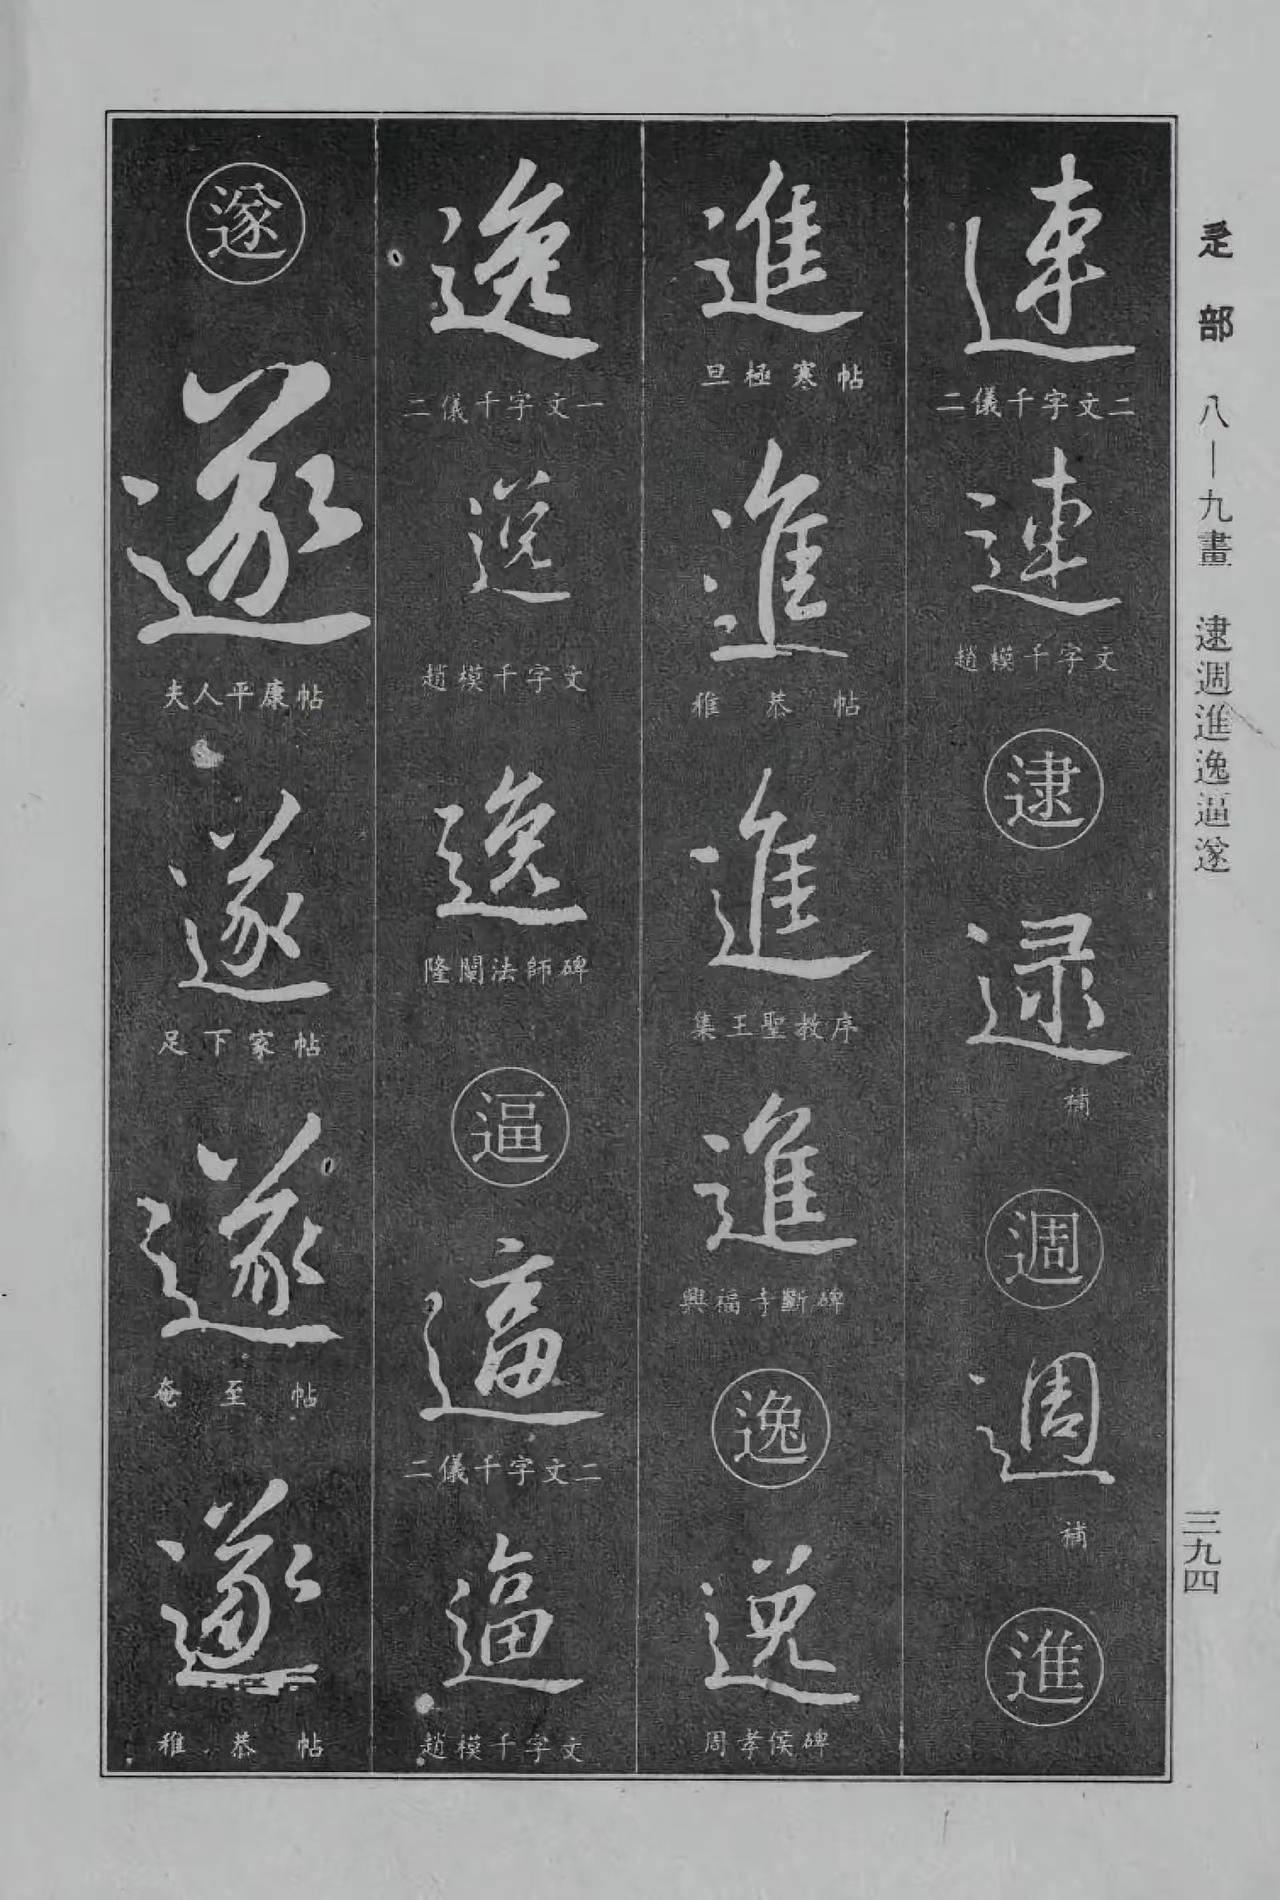 辵部 八—九畫 逮週進逸逼遂
三九四
連
二儀千字文二
連
趙模千字文
逮
逮
補
週
週
補
進
進
旦極寒帖
進
稚恭帖
進
集王聖教序
進
興福寺斷碑
逸
逸
周孝侯碑
逸
二儀千字文一
逸
趙模千字文
逸
隆闡法師碑
逼
逼
二儀千字文二
逼
趙模千字文
遂
遂
夫人平康帖
遂
足下家帖
遂
奄至帖
遂
稚恭帖